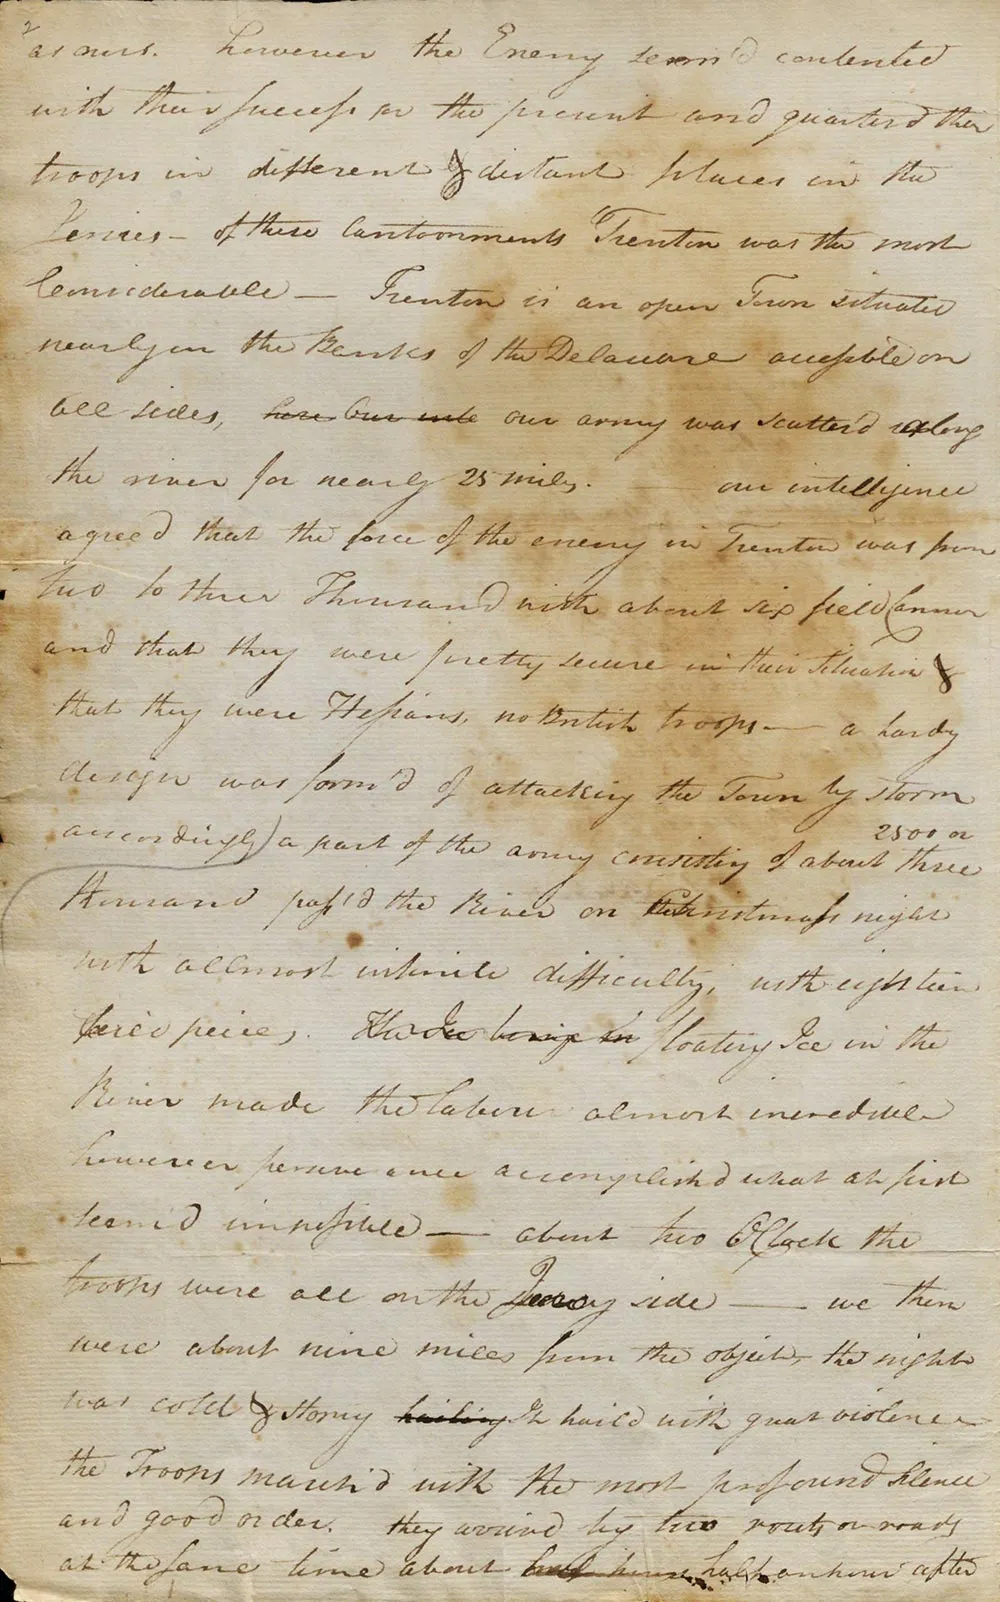 2
as ours. however the Enemy seem'd contented
with their success for the present and quarterd their
troops in different & distant places in the
Jersies - of these Cantoonments Trenton was the most
Considerable — Trenton is an open Town situated
nearly on the Banks of the Delaware accessible on
all sides, our army was scatter'd along
the river for nearly 25 miles. — our intelligence
agree'd that the force of the enemy in Trenton was from
two to three Thousand with about six field Cannon
and that they were pretty secure in their situation &
that they were Hessians, no British troops — a hardy
design was form'd of attacking the Town by storm
2500 or
accordingly) a part of the army consisting of about three
thousand pass'd the River on Christmass night
with allmost infinite difficulty, with eighteen
feild peices. The Ice being in floating Ice in the
River made the labour almost incredible
however perseverance accomplish'd what at first
seem'd impossible — about two OClock the
troops were all on the Jersey side — we then
were about nine miles from the object, the night
was cold & stormy hailing It hail'd with great violence
the Troops march'd with the most profound silence
and good order. they arrived by two routs or roads
at the same time about half hour half an hour after